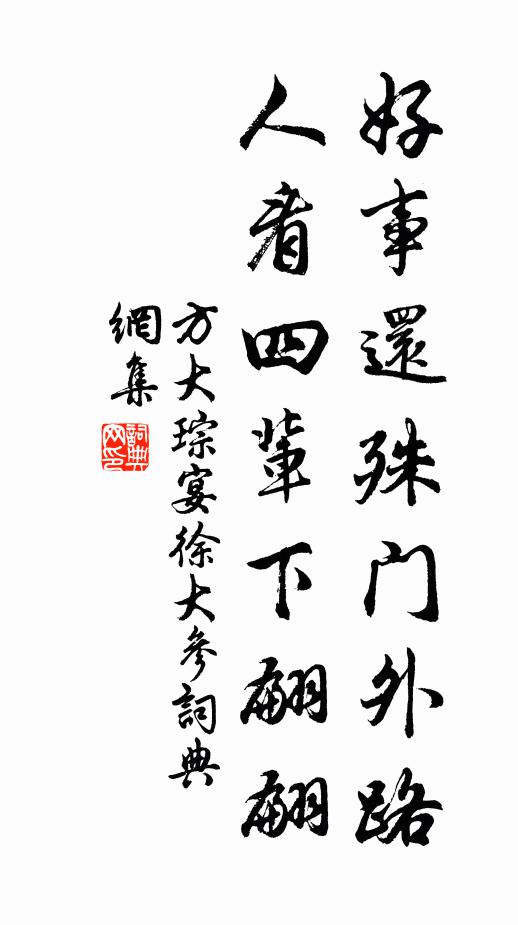 好事還殊门外路
人看四輩下翩翩
方大琮宴徐大參詞典
網集
詞典
网印